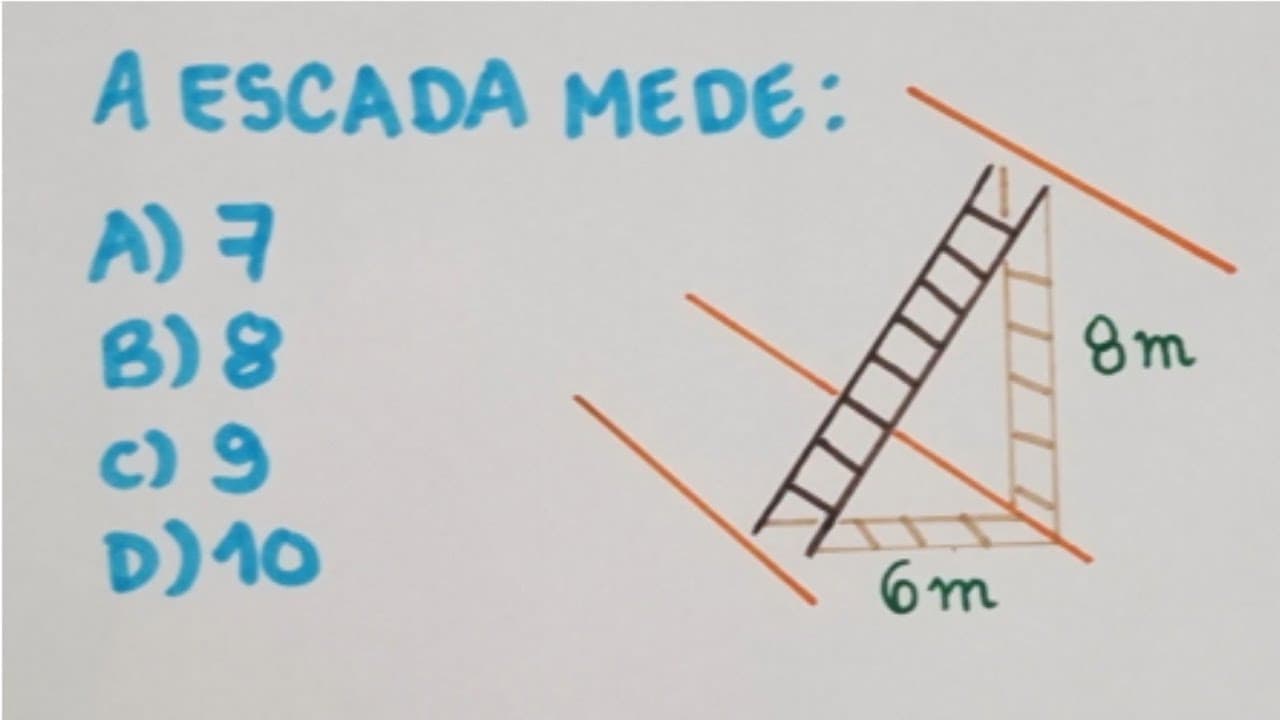 A ESCADA MEDE:
A) 7
B) 8
C) 9
D) 10
8m
6m